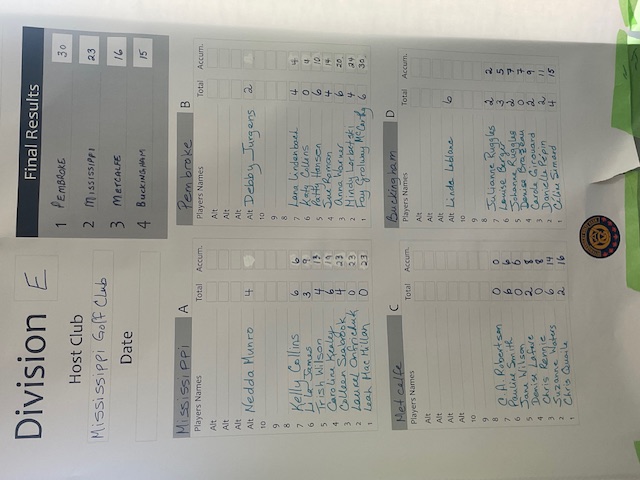 Division E
Host Club
Mississippi Golf Club
Date
Final Results
1 PEMBROKE 30
2 MISSISSIPPI 23
3 METCALFE 16
4 BUCKINGHAM 15
Mississippi A
Players Names Total Accum.
Alt
Alt
Alt
Alt Nedda Munro 4
10
9
8
7 Kelly Collins 6 6
6 Liz James 3 9
5 Trish Wilson 4 13
4 Caroline Healey 6 19
3 Colleen Seabrook 4 23
2 Laurel 0 23
1 Leah MacMillan 0 23
Pembroke B
Players Names Total Accum.
Alt
Alt
Alt
Alt Debby Jurgens 2
10
9
8
7 Lana Lindenbach 4 4
6 Katy Collins 0 4
5 Patty Hansen 6 10
4 Sue 4 14
3 Anna 6 20
2 4 24
1 Fay McCarthy 6 30
Metcalfe C
Players Names Total Accum.
Alt
Alt
Alt
Alt
10
9
8
7 C A Robertson 0 0
6 Pauline Smith 6 6
5 Jane Wilson 0 6
4 Denise 2 8
3 Chris Rennie 0 8
2 Suzanne Waters 6 14
1 Chris Quaile 2 16
Buckingham D
Players Names Total Accum.
Alt
Alt
Alt
Alt Linda Leblanc 6
10
9
8
7 Julianne Ruggles 2 2
6 Louise Berger 3 5
5 Johanne Ruggles 2 7
4 Denise Brazeau 0 7
3 Carole Charbonneau 2 9
2 Danielle Pepin 2 11
1 Céline Simard 4 15